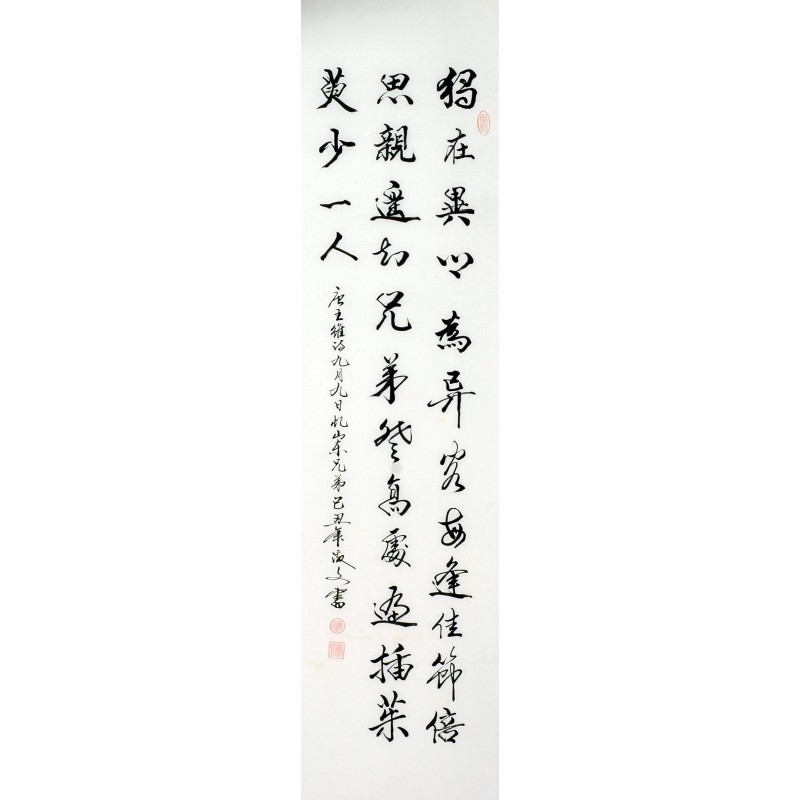 獨在異鄉為异客每逢佳節倍
思親遥知兄弟登高處遍插茱
萸少一人
唐王維诗九月九日忆山东兄弟己丑年文書